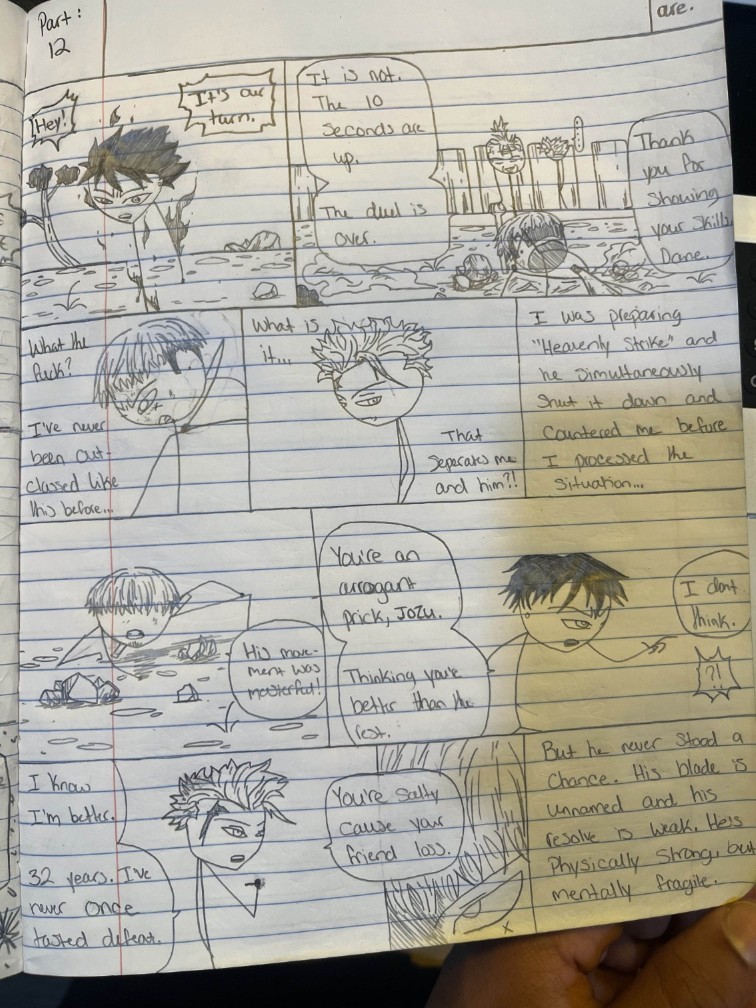 Part:
12
are.
Hey!
It's our
turn.
It is not.
The 10
Seconds are
up.
The duel is
over.
Thank
you for
Showing
your Skills
Dane.
What the
fuck?
I've never
been out-
classed like
this before...
What is
it...
That
Seperates me
and him?!
I was preparing
"Heavenly Strike" and
he simultaneously
Shut it down and
Countered me before
I processed the
Situation...
His move-
ment was
masterful!
You're an
arrogant
prick, Jozu.
Thinking you're
better than the
rest.
I dont
think.
?!
I know
I'm better.
32 years. I've
never once
tasted defeat.
You're Salty
cause your
friend loss.
But he never Stood a
Chance. His blade is
unnamed and his
resolve is weak. He's
Physically Strong, but
mentally fragile.